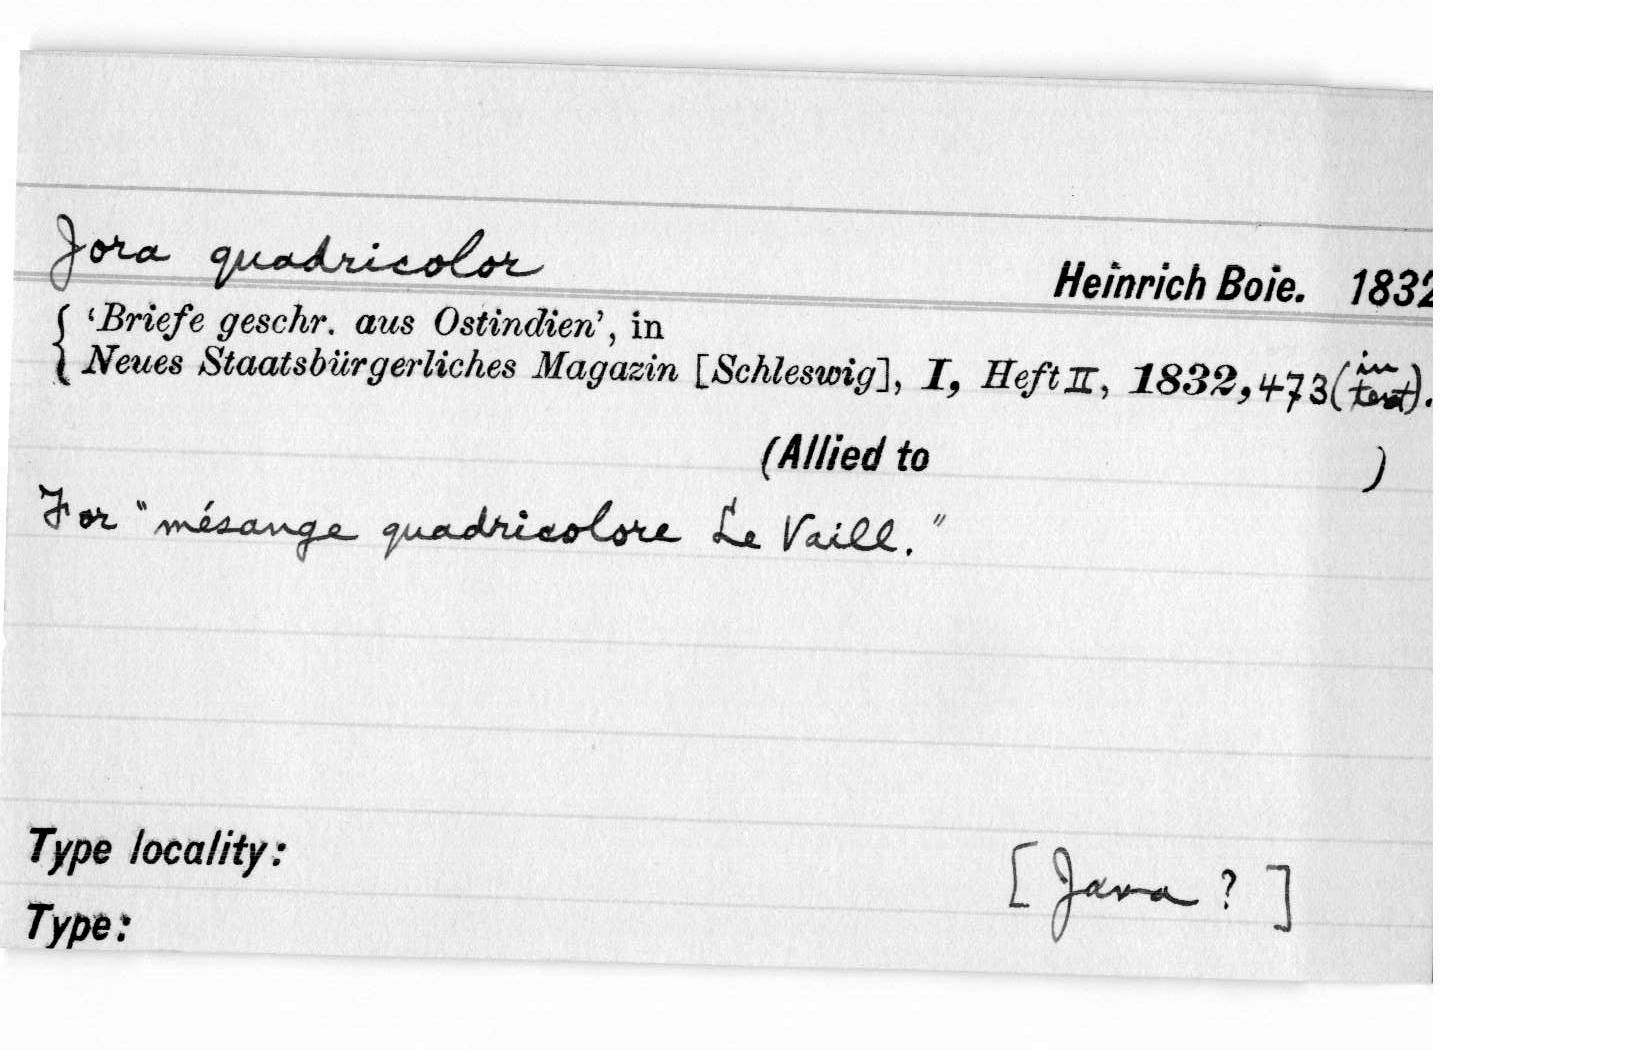 Jora quadricolor
Heinrich Boie. 1832
{ ‘Briefe geschr. aus Ostindien’, in
Neues Staatsbürgerliches Magazin [Schleswig], I, Heft II, 1832, 473 (in text).
(Allied to )
For "mésange quadricolore Le Vaill."
Type locality: [Java ?]
Type: